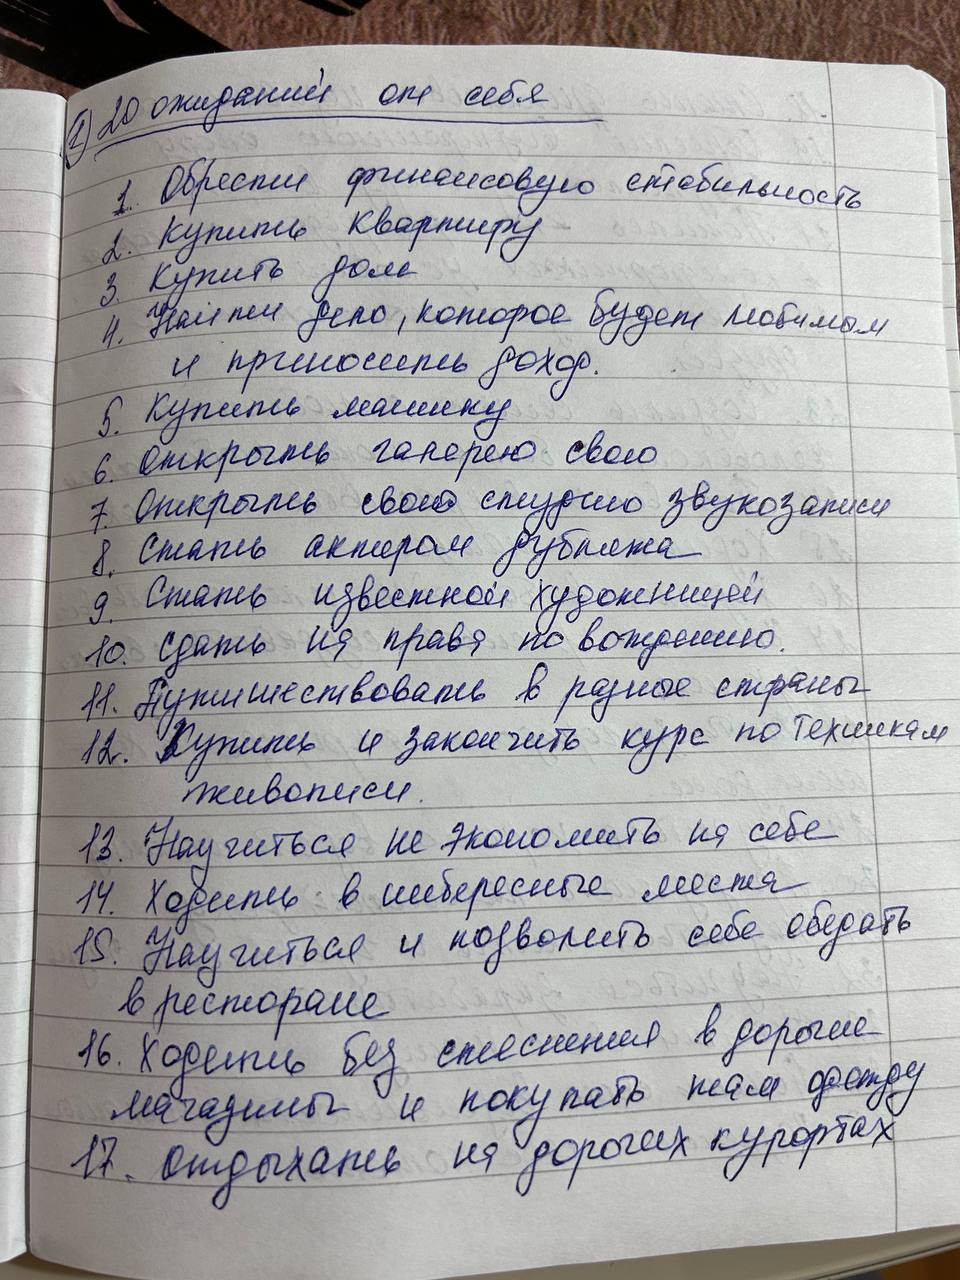 1) 20 ожиданий от себя
1. Обрести финансовую стабильность
2. Купить квартиру
3. Купить дом
4. Найти дело, которое будет любимым
и приносить доход.
5. Купить машину
6. Открыть галерею свою
7. Открыть свою студию звукозаписи
8. Стать актером дубляжа
9. Стать известной художницей
10. Сдать на права по вождению.
11. Путишествовать в разные страны
12. Купить и закончить курс по техникам
живописи.
13. Научиться не экономить на себе
14. Ходить в интересные места
15. Научиться и позволить себе обедать
в ресторане
16. Ходить без стеснения в дорогие
магазины и покупать там одежду
17. Отдыхать на дорогих курортах